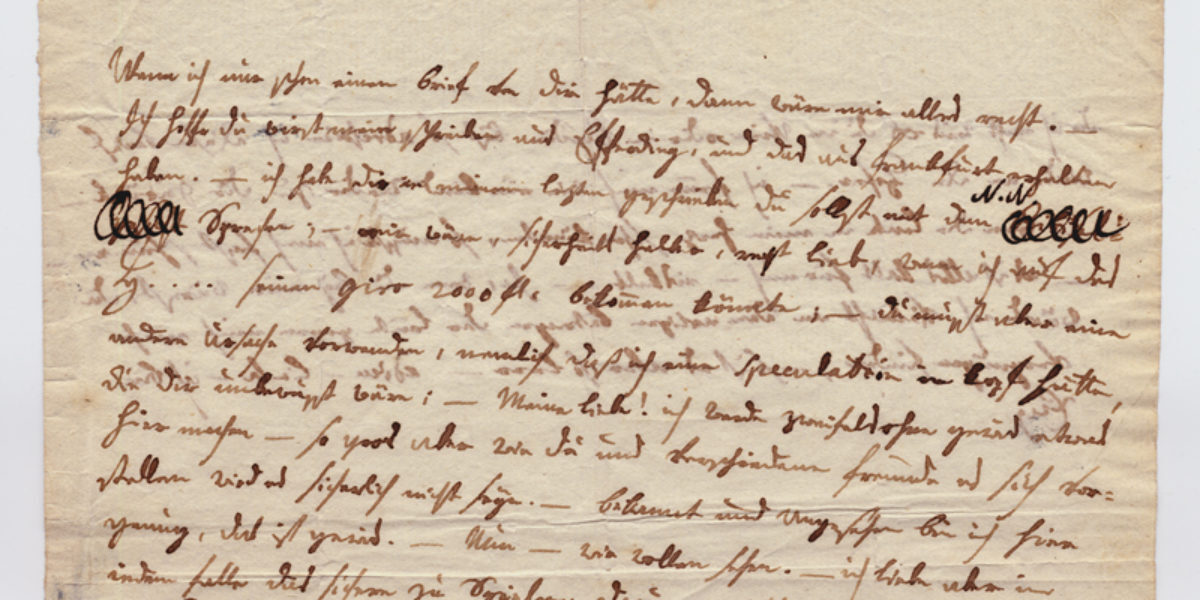 Wenn ich nur schon einen brief von dir hätte, dann wäre mir alles recht. —
Ich hoffe du wirst mein schreiben aus Efferding, und das aus frankfurt erhalten
haben. — ich habe dir in meinem letzten geschrieben du sollst mit dem
N. N.
Sprechen; — mir wäre, sicherheit halber, recht lieb, wenn ich auf des
H.... seinen giro 2000 fl: bekommen könnte; — du musst aber eine
andere ursache vorwenden, nemlich daß ich eine speculation im kopf hätte,
die dir unbewusst wäre; — Meine liebe! ich werde zweifelsohne gewis etwas
hier machen — so gros aber wie du und verschiedene freunde es sich vor=
stellen wird es sicherlich nicht seyn. — bekannt und angesehen bin ich hier
genug, das ist gewis. — Nun — wir wollen sehen. — ich liebe aber in
jedem falle das sichere zu Spielen,